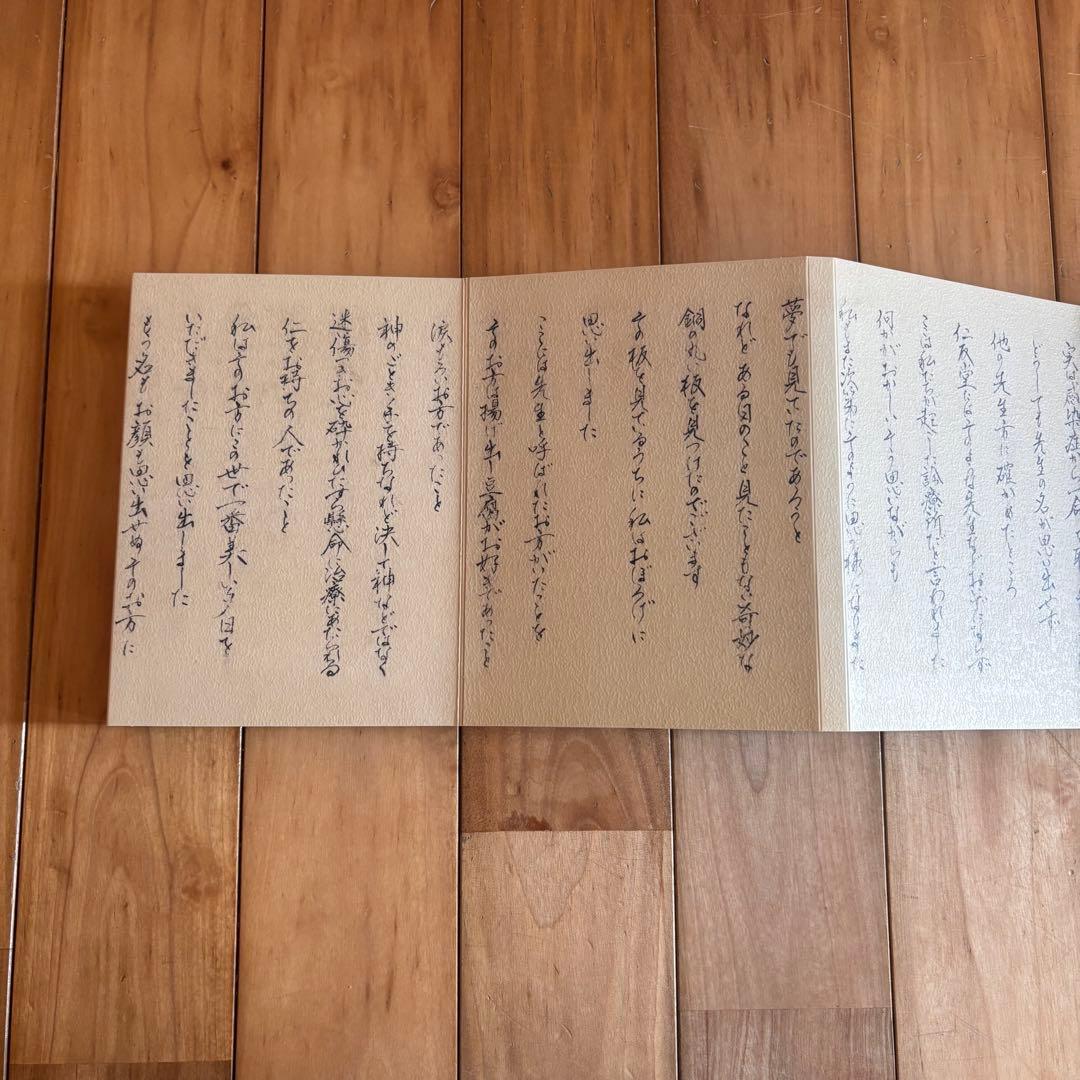 実は感染症から一命
どうしても先生の名が思い出せず
他の先生方に確かめたところ
仁友堂にはそのような先生などおいでにならず
ここは私たちが起こした試療所だと言われました
何かがおかしい そう思いながらも
私もまた次第にそのように思う様になりました
夢でも見ていたのであろうと
なれど ある日のこと 見たこともない奇妙な
銅の丸い板を見つけたのでございます
その板を見ているうちに 私はおぼろげに
思い出しました
ここには先生と呼ばれたお方がいたことを
そのお方は揚げ出し豆腐がお好きであったこと
涙もろいお方であったこと
神のごとき手を持ちなれど 決して神などではなく
迷い傷つきお心を砕かれひたすら懸命に治療にあたられる
仁をお持ちの人であったこと
私はそのお方にこの世で一番美しい夕日を
いただきましたことを思い出しました
もう名もお顔も思い出せぬそのお方に